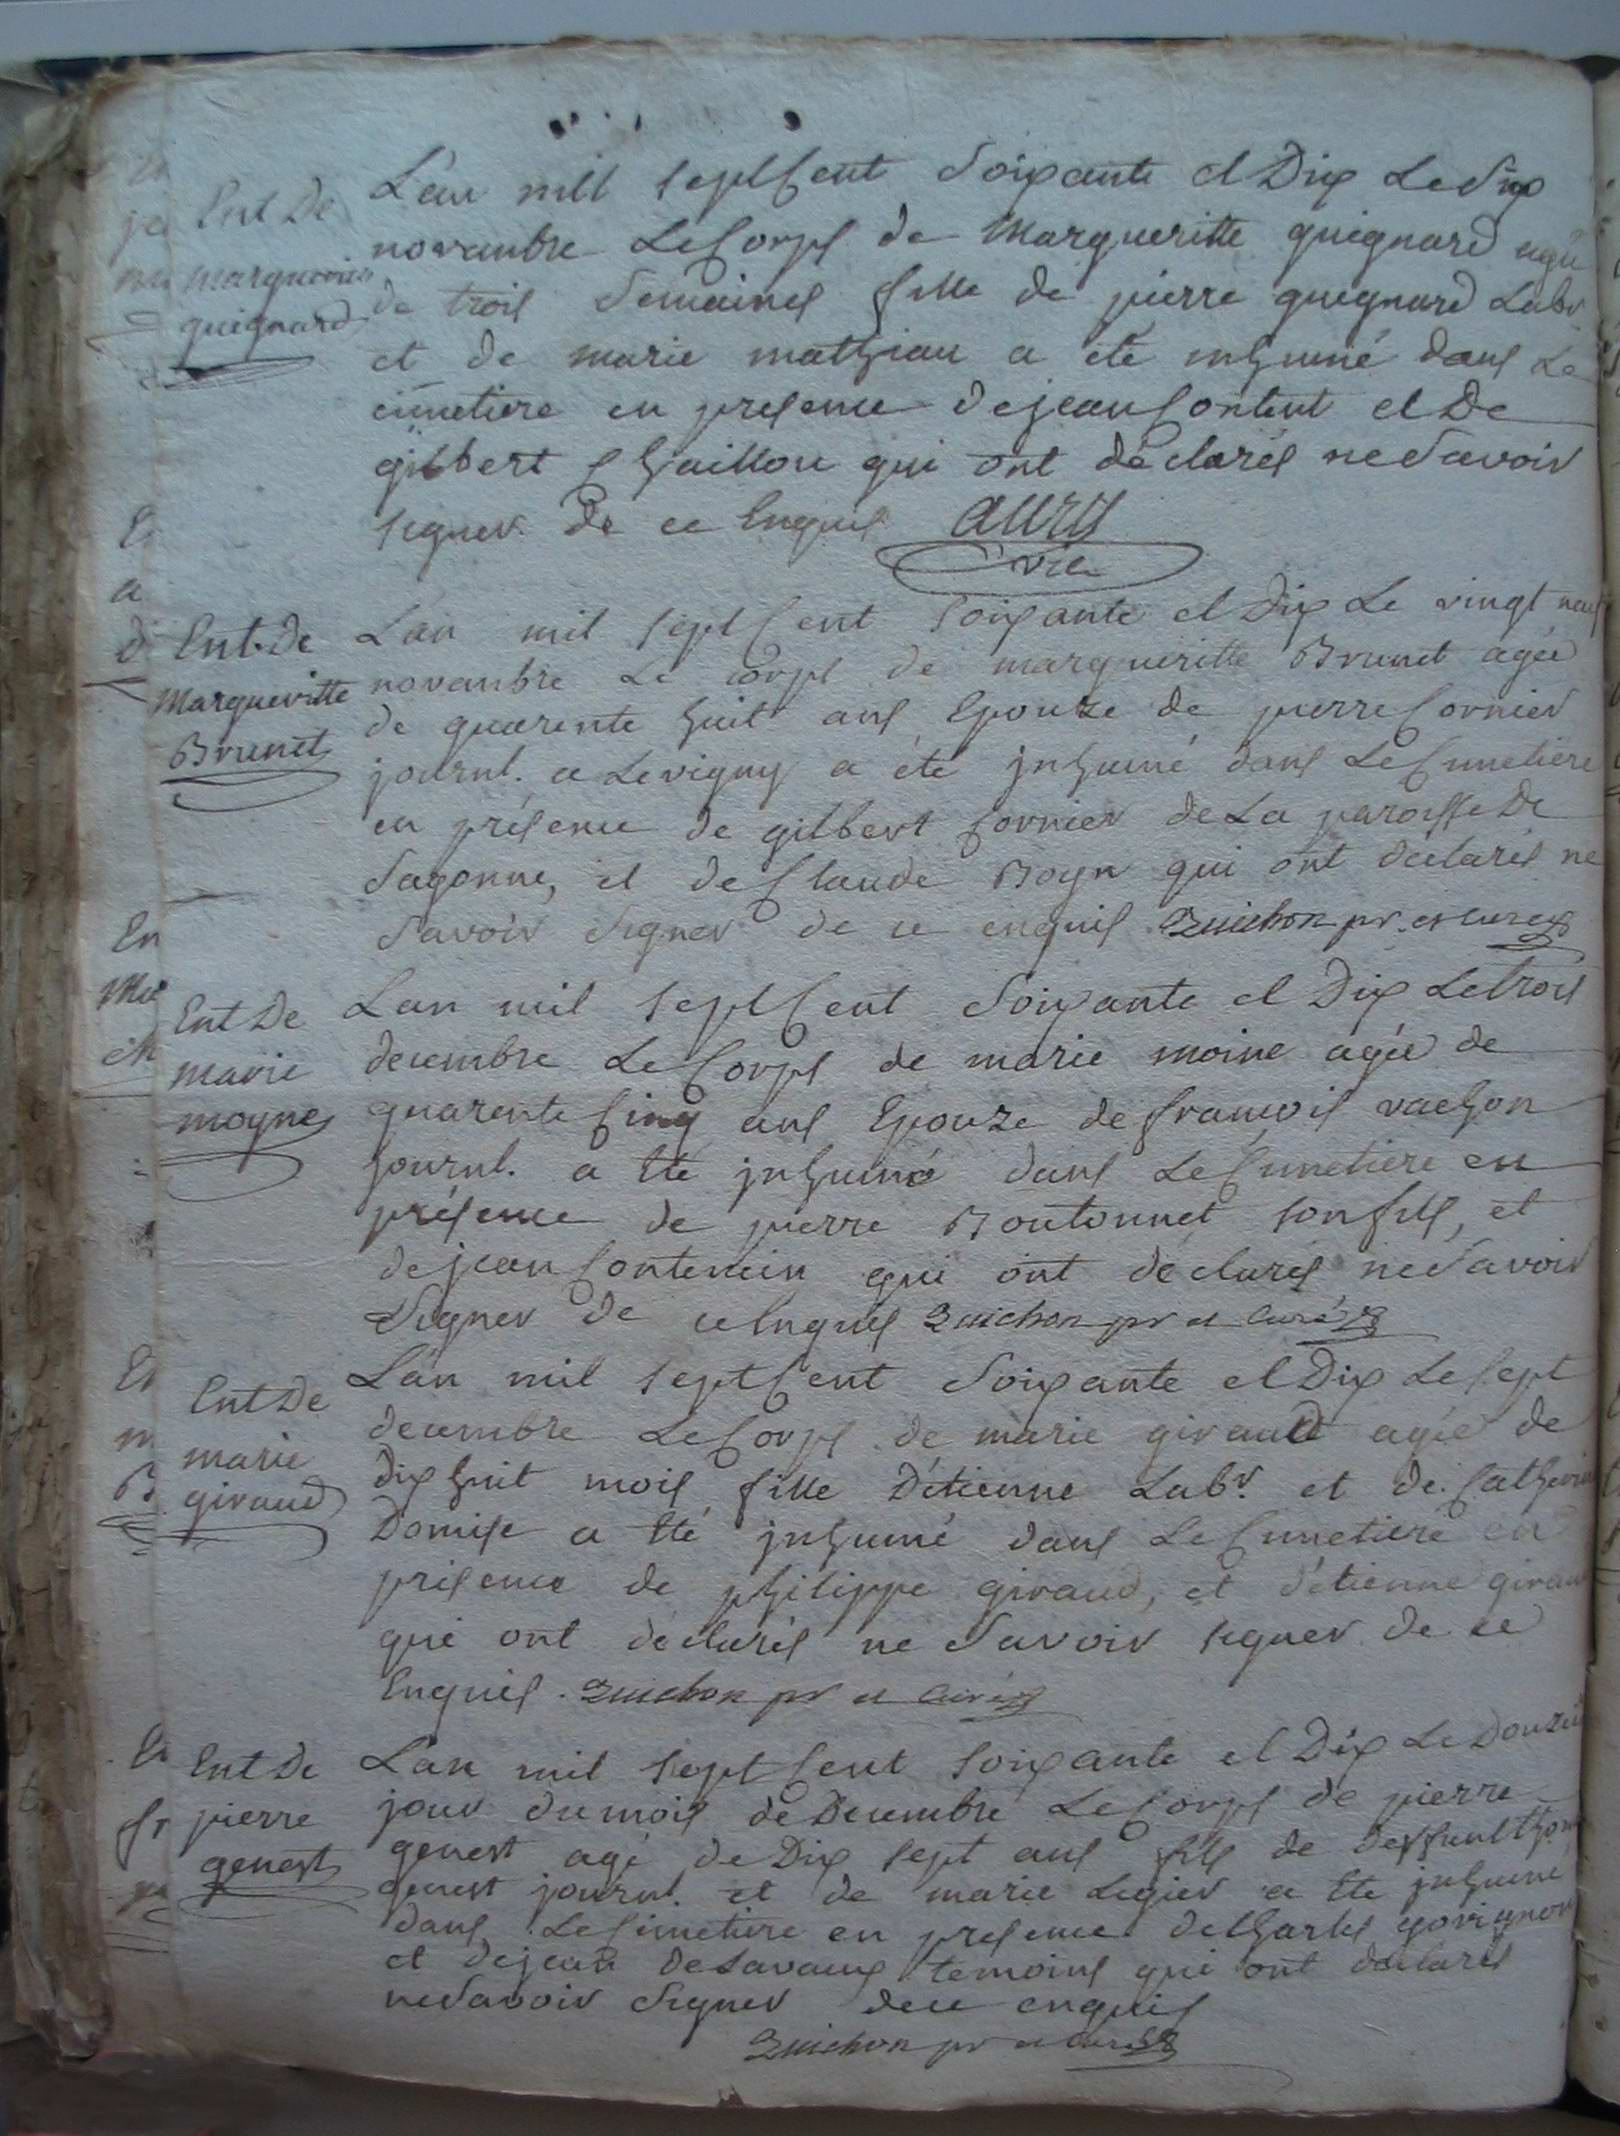 Ent De
margueritte
guignard
L'an mil sept Cent soixante et Dix Le Six
novembre Le Corps de Margueritte guignard agée
de trois semaines fille de pierre guignard Labr.
et de marie mathiau a été inhumé dans Le
cimetiere en presence de jean Contint et De
gilbert Chaillou qui ont déclarés ne savoir
signer de ce Enquis AURY
Ent. De
Margueritte
Brunet
L'an mil sept Cent soixante et Dix Le vingt neuf
novembre Le corps de margueritte Brunet agée
de quarente huit ans Epouze de pierre Cornier
journl. a Levigny a été jnhumé dans Le Cimetiere
en présence de gilbert Cornier de La paroisse De
Sagonne, et de Claude Boyr qui ont déclarés ne
savoir signer de ce enquis Quichon pr. et curé
Ent De
marie
moyne
L'an mil sept Cent soixante et Dix Le trois
decembre Le Corps de marie moine agée de
quarente Cinq ans Epouze de françois vachon
journl. a Eté jnhumé dans Le Cimetiere en
présence de pierre Boutonnet son fils, et
de jean Contencin qui ont déclarés ne savoir
signer de ce Enquis Quichon pr et Curé
Ent De
marie
giraud
L'an mil sept Cent soixante et Dix Le sept
decembre Le Corps de marie giraud agée de
Dix huit mois fille D'étienne Labr. et de Catherine
Domise a Eté jnhumé dans Le Cimetiere en
présence de philippe giraud, et d'étienne giraud
qui ont déclarés ne savoir signer de ce
Enquis. Quichon pr et Curé
Ent De
pierre
genest
L'an mil sept Cent soixante et Dix Le Douzieme
jour du mois de Decembre Le Corps de pierre
genest agé de Dix sept ans fils de deffunt
genest journl. et de marie Legier a Eté jnhumé
dans Le Cimetiere en presence de Charles govignon
et de jean Desavaux temoins qui ont déclarés
ne savoir signer de ce enquis
Quichon pr et Curé